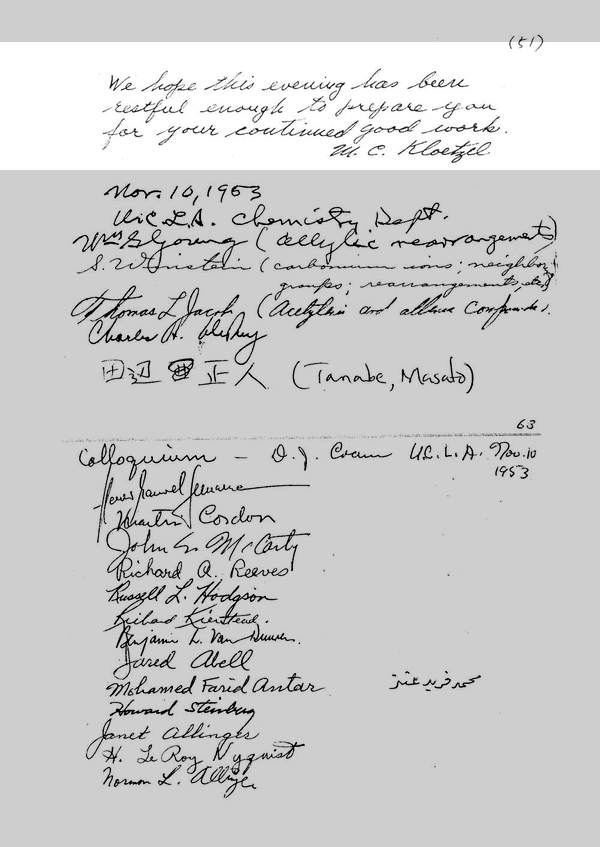 (51)
We hope this evening has been
restful enough to prepare you
for your continued good work.
M. C. Kloetzel
Nov. 10, 1953
U.C.L.A. Chemistry Dept.
Wm G Young (allylic rearrangements)
S. Winstein (carbonium ions; neighbor
groups; rearrangements, etc.)
Thomas L Jacobs (Acetylenic and allene Compounds).
Charles A.
田辺 正人 (Tanabe, Masato)
63
Colloquium — D. J. Cram U.C.L.A. Nov. 10
1953
Martin Cordon
John G McCarty
Richard A. Reeves
Russell L. Hodgson
Richard Kierstead.
Benjamin L. Van Duuren.
Jared Abell
Mohamed Farid Antar محمد فريد عنتر
Howard Steinberg
Janet Allinger
H. Le Roy Nyquist
Norman L. Allinger